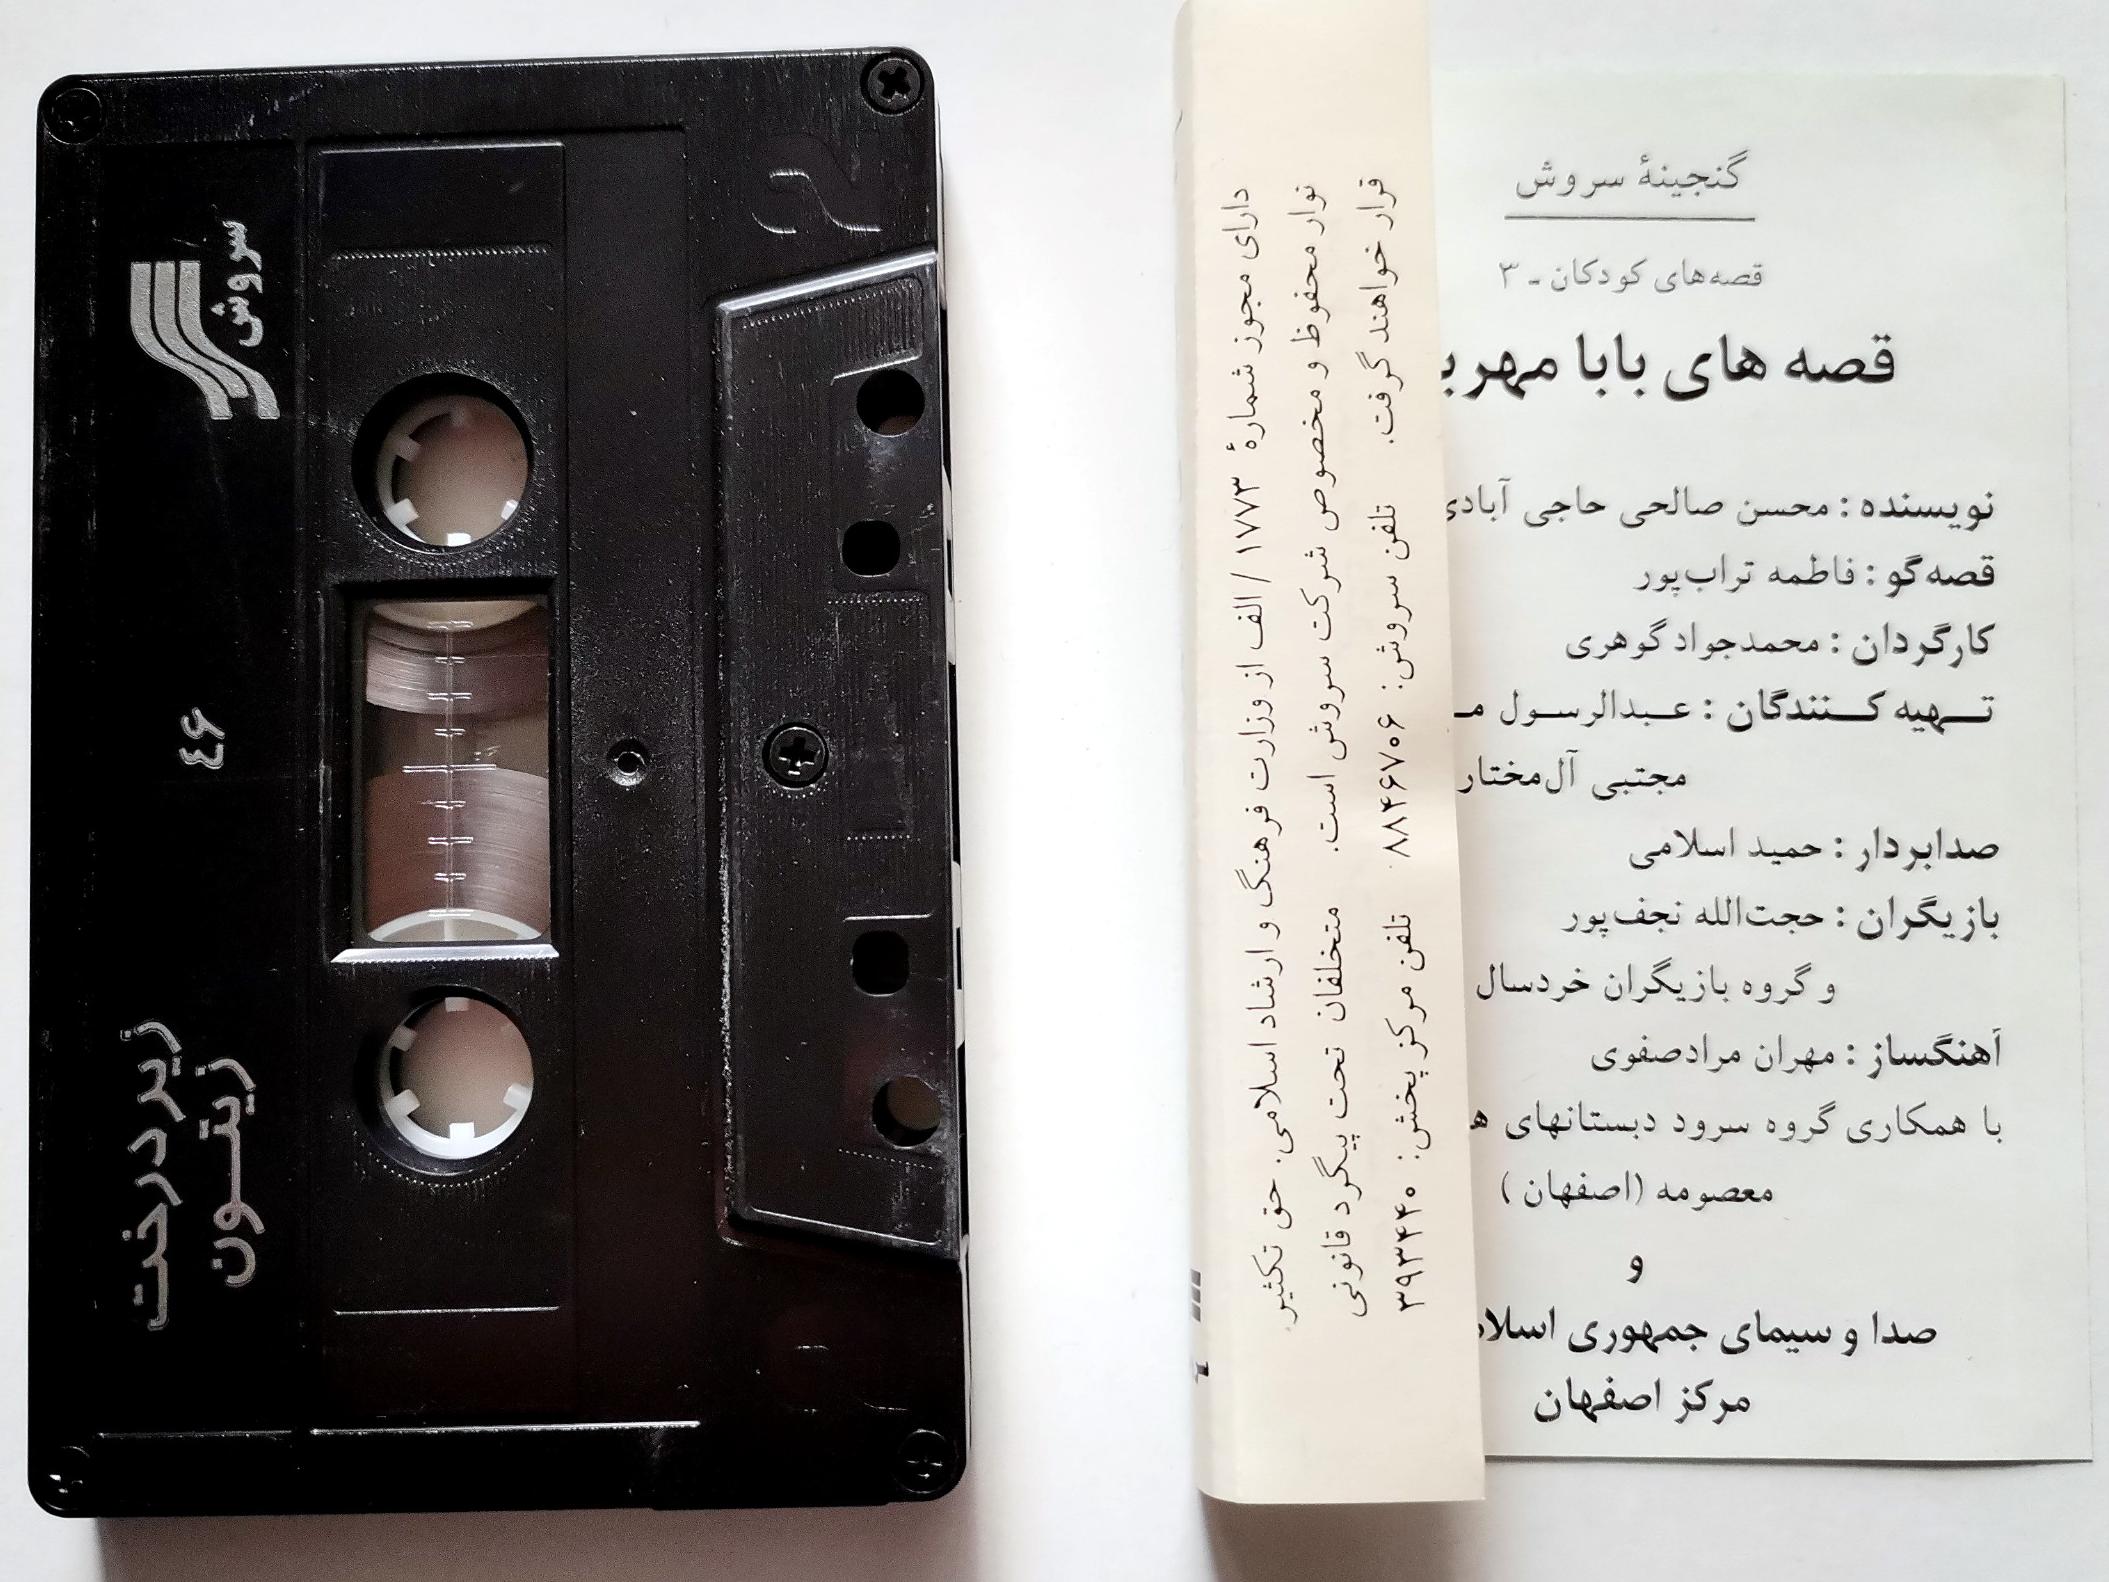 سروش
۴۶
زیر درخت
زیتون
دارای مجوز شمارهٔ ۱۷۷۳ / الف از وزارت فرهنگ و ارشاد اسلامی. حق تکثیر
نوار محفوظ و مخصوص شرکت سروش است. متخلفان تحت پیگرد قانونی
قرار خواهند گرفت. تلفن سروش: ۸۸۴۶۷۰۶ تلفن مرکز پخش: ۳۹۳۴۴۰
گنجینهٔ سروش
قصه‌های کودکان ـ ۳
قصه های بابا
نویسنده : محسن صالحی حاجی آبادی
قصه‌گو : فاطمه تراب‌پور
کارگردان : محمدجواد گوهری
تهیه کنندگان : عبدالرسول
مجتبی آل‌مختار
صدابردار : حمید اسلامی
بازیگران : حجت‌الله نجف‌پور
و گروه بازیگران خردسال
آهنگساز : مهران مرادصفوی
با همکاری گروه سرود دبستانهای
معصومه (اصفهان )
و
صدا و سیمای جمهوری
مرکز اصفهان